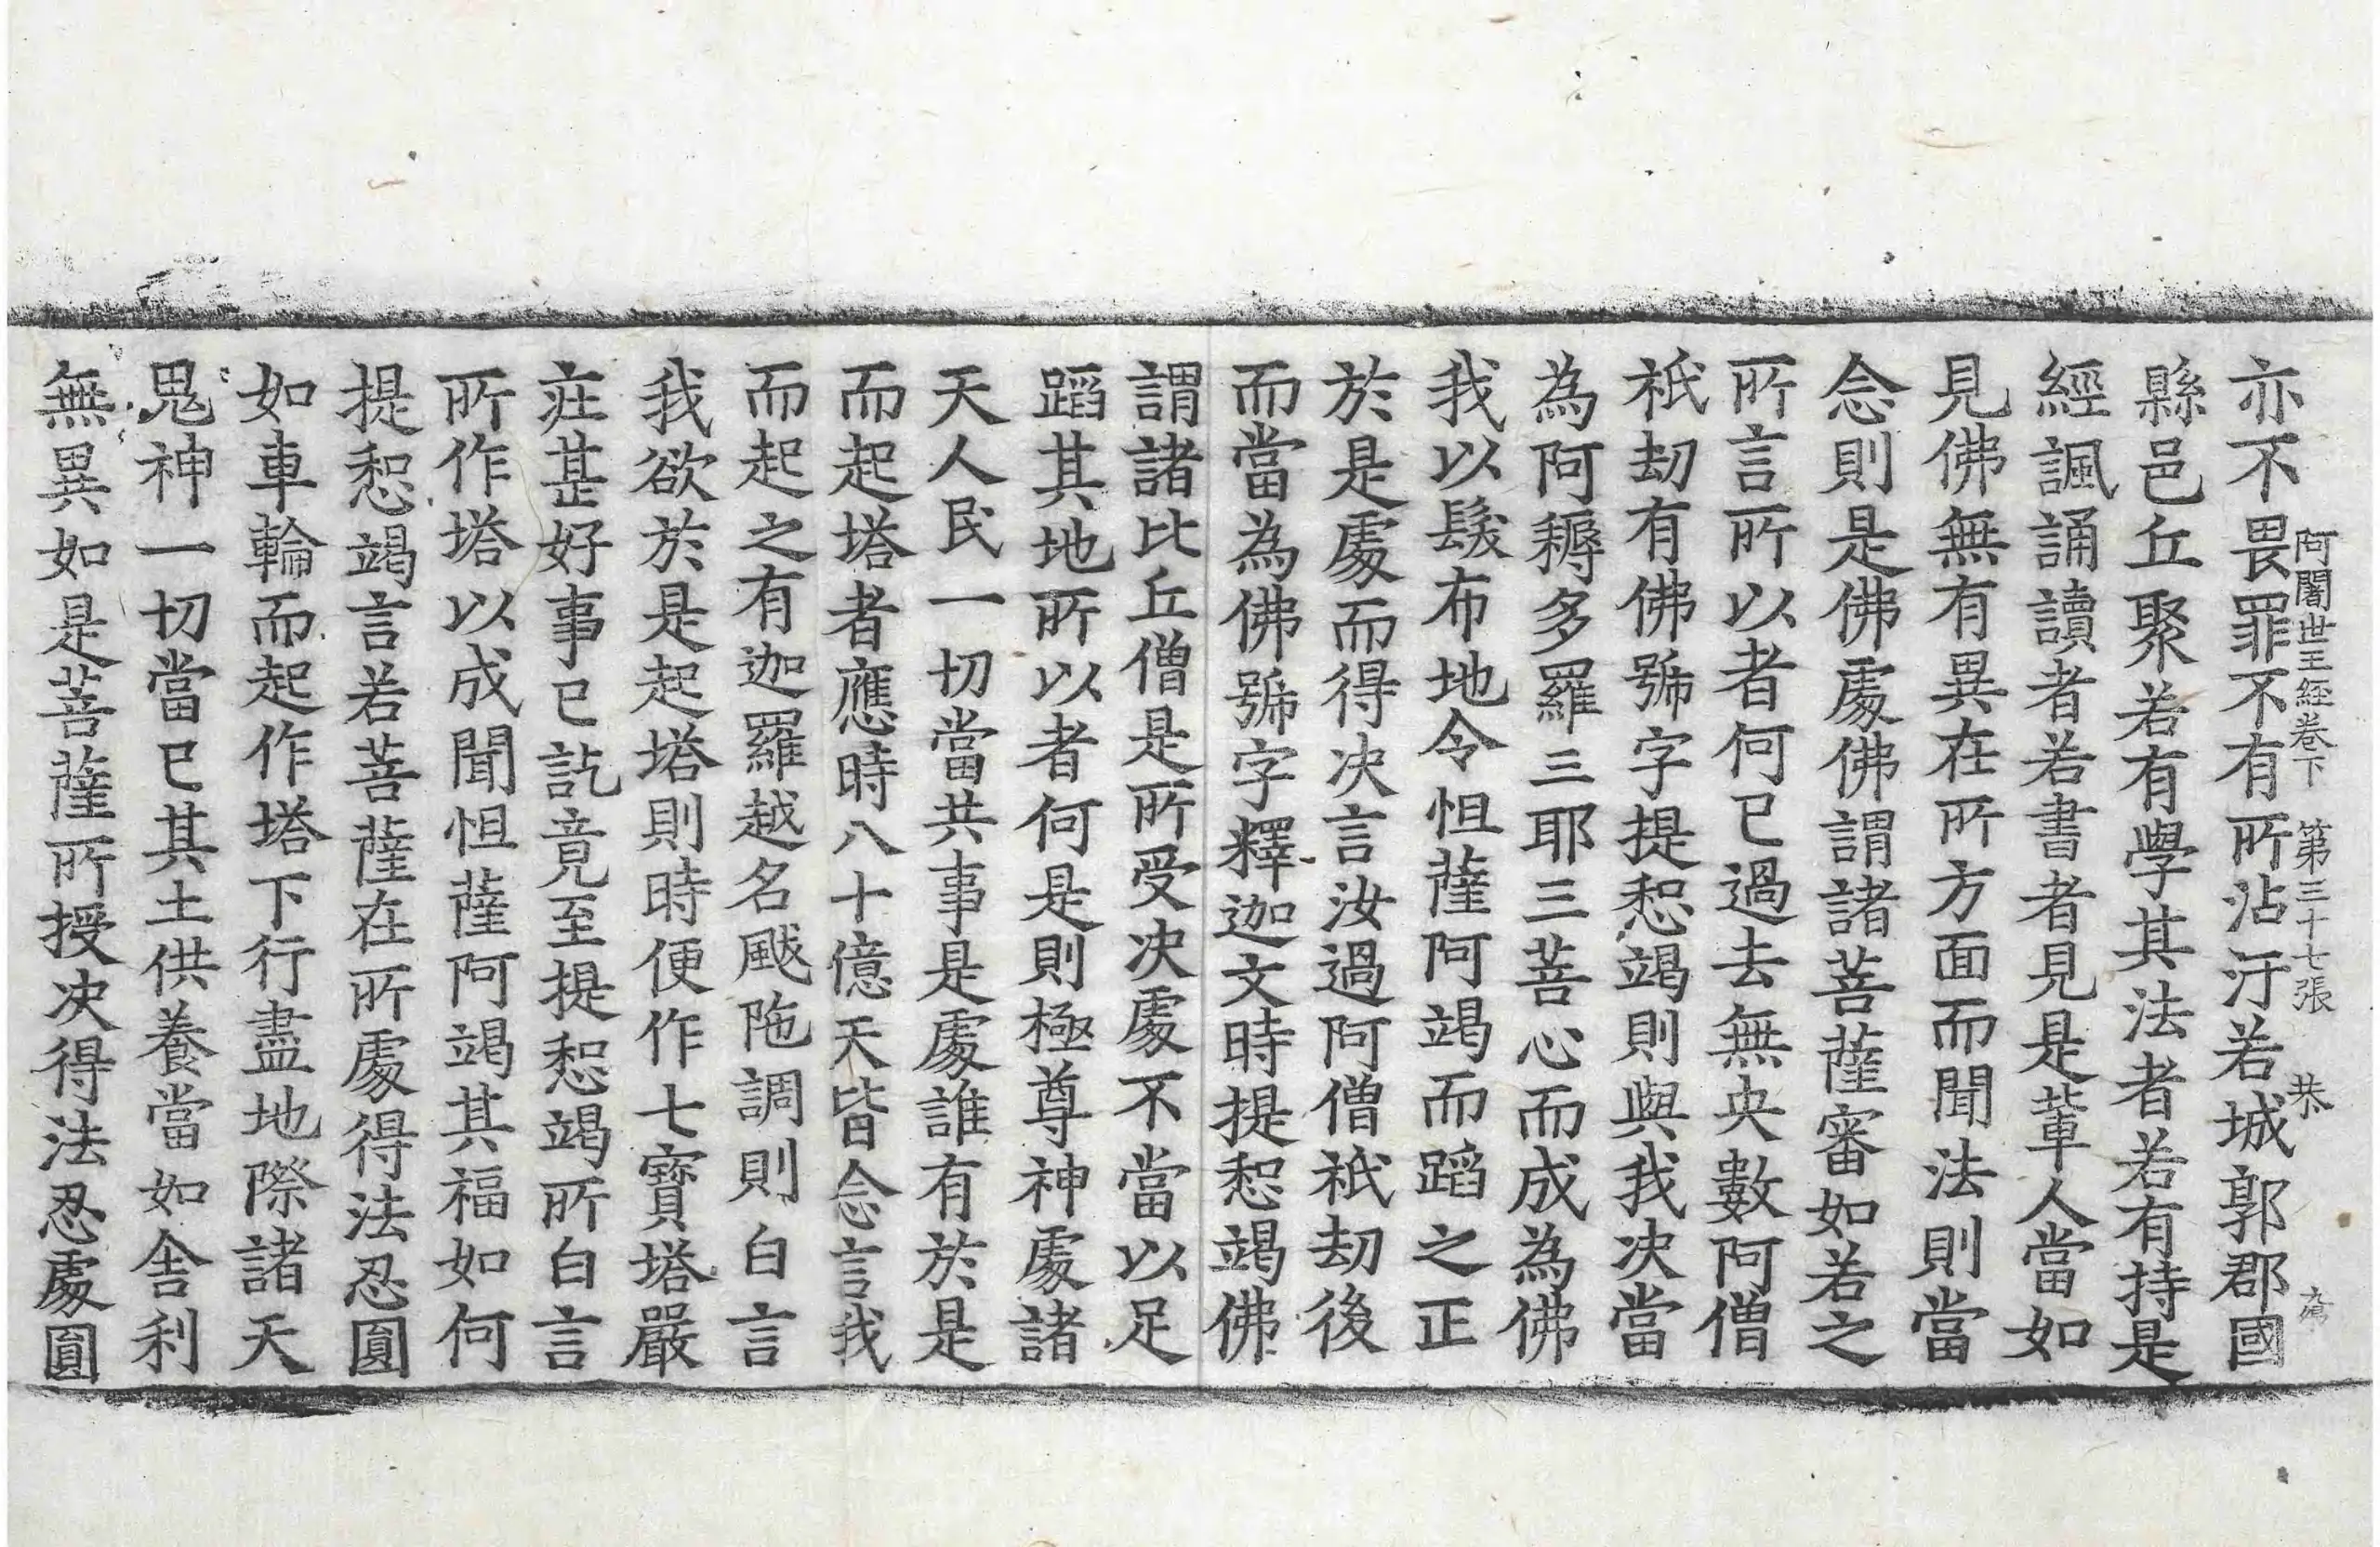 阿闍世王經卷下 第三十七張 恭
亦不畏罪不有所沾汙若城郭郡國
縣邑丘聚若有學其法者若有持是
經諷誦讀者若書者見是輩人當如
見佛無有異在所方面而聞法則當
念則是佛處佛謂諸菩薩審如若之
所言所以者何已過去無央數阿僧
祇劫有佛號字提惒竭則與我決當
為阿耨多羅三耶三菩心而成為佛
我以髮布地令怛薩阿竭而蹈之正
於是處而得决言汝過阿僧祇劫後
而當為佛號字釋迦文時提惒竭佛
謂諸比丘僧是所受决處不當以足
蹈其地所以者何是則極尊神處諸
天人民一切當共事是處誰有於是
而起塔者應時八十億天皆念言我
而起之有迦羅越名颰陁調則白言
我欲於是起塔則時便作七寶塔嚴
莊甚好事已訖竟至提惒竭所白言
所作塔以成聞怛薩阿竭其福如何
提惒竭言若菩薩在所處得法忍圓
如車輪而起作塔下行盡地際諸天
鬼神一切當已其土供養當如舍利
無異如是菩薩所授决得法忍處圓